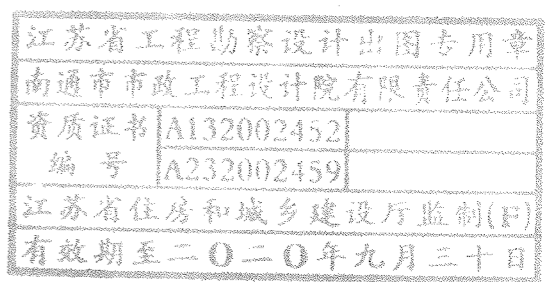 江苏省工程勘察设计出图专用章
南通市市政工程设计院有限责任公司
资质证书 A132002452
编号 A232002459
江苏省住房和城乡建设厅监制(F)
有效期至二〇二〇年九月三十日